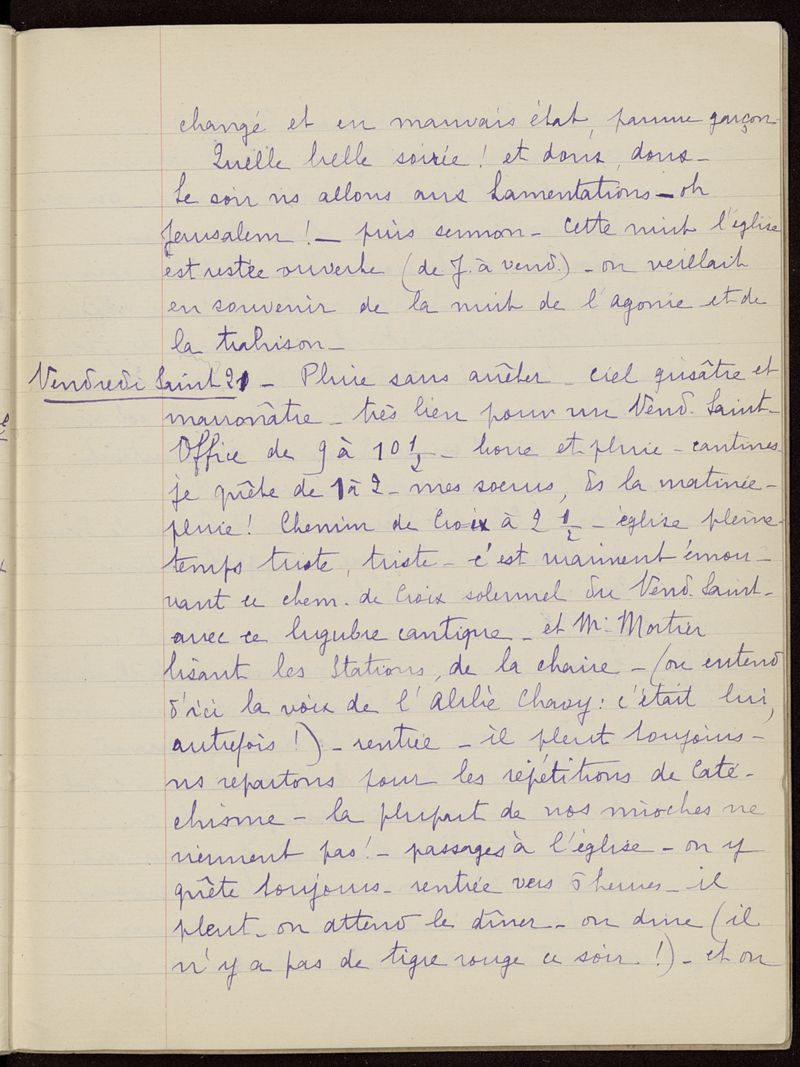 changé et en mauvais état, pauvre garçon-
Quelle belle soirée ! et doux, doux -
Le soir ns allons aux Lamentations - oh
Jerusalem ! - puis sermon - Cette nuit l'église
est restée ouverte (de J. à vend.) - on veillait
en souvenir de la nuit de l'agonie et de
la trahison -
Vendredi Saint 21 - Pluie sans arrêter - ciel grisâtre et
marronâtre - très bien pour un Vend. Saint -
Office de 9 à 10 1/2 - boue et pluie - cantines
je quête de 1 à 2 - mes soeurs, ds la matinée -
pluie ! Chemin de Croix à 2 1/2 - église pleine -
temps triste, triste - c'est vraiment émou-
vant ce chem. de Croix solennel du Vend. Saint -
avec ce lugubre cantique - et Mr Mortier
lisant les Stations, de la chaire - (on entend
d'ici la voix de l'Abbé Chavy : c'était lui,
autrefois !) - rentrée - il pleut toujours -
ns repartons pour les répétitions de Caté-
chisme - la plupart de nos mioches ne
viennent pas ! - passages à l'église - on y
quête toujours - rentrée vers 6 heures - il
pleut - on attend le dîner - on dine (il
n'y a pas de tigre rouge ce soir !) - et on